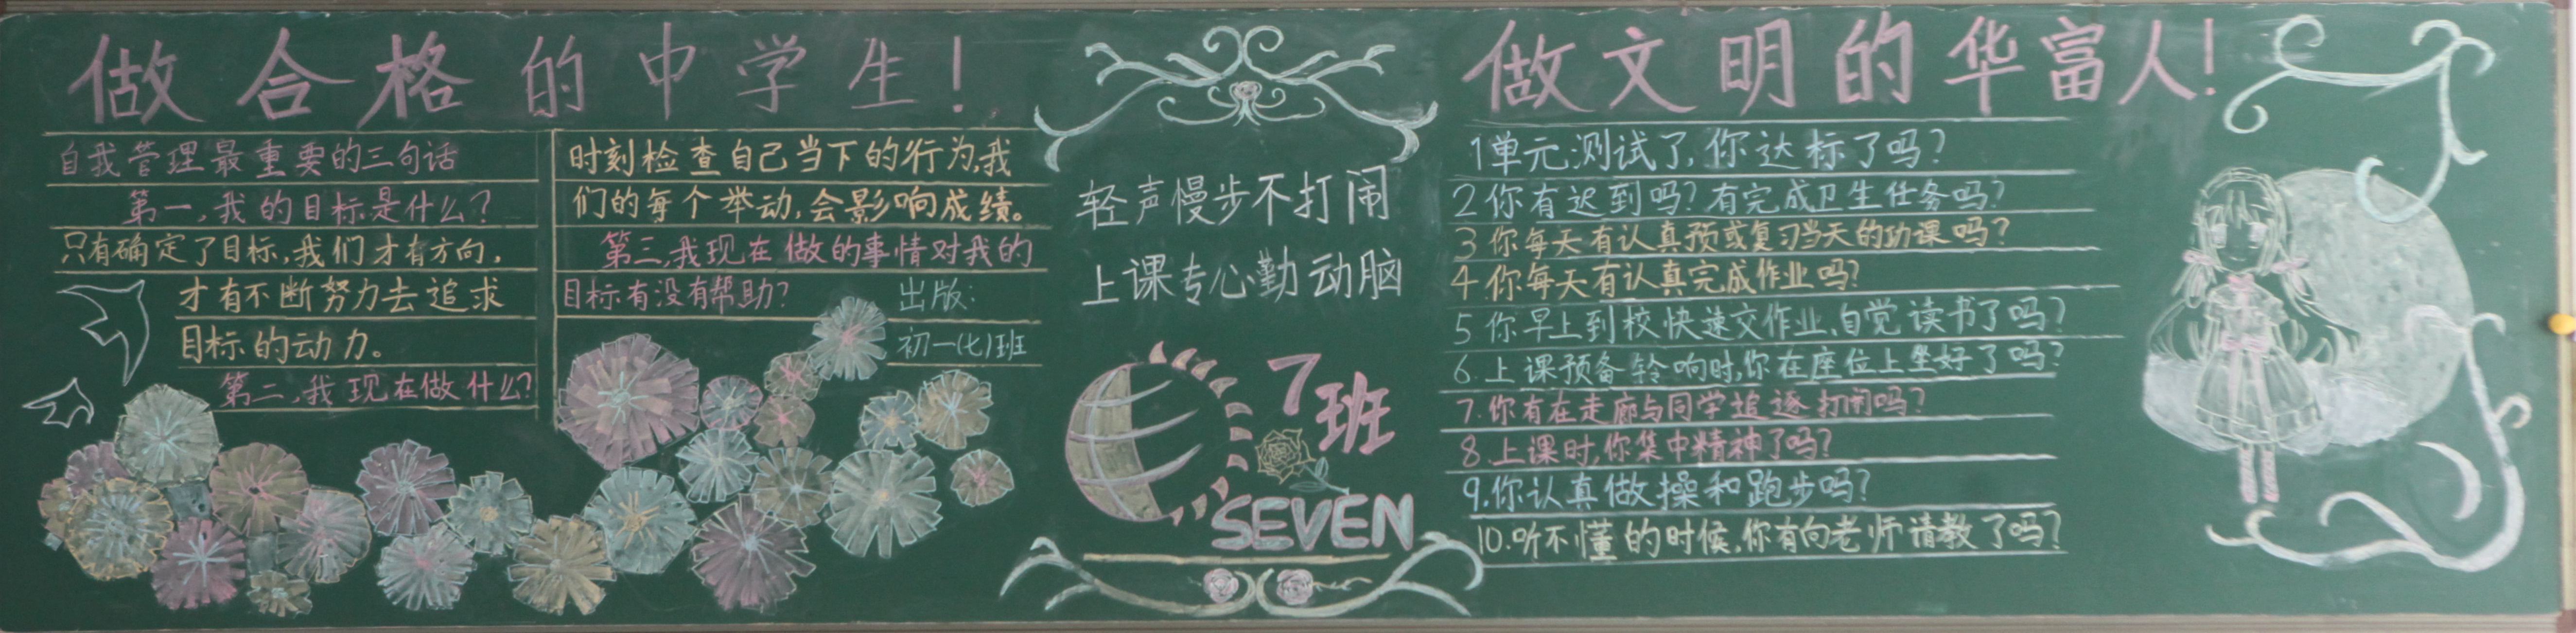 做合格的中学生！
自我管理最重要的三句话
第一,我的目标是什么?
只有确定了目标,我们才有方向,
才有不断努力去追求
目标的动力。
第二,我现在做什么?
时刻检查自己当下的行为,我
们的每个举动,会影响成绩。
第三,我现在做的事情对我的
目标有没有帮助?
出版:
初一(七)班
轻声慢步不打闹
上课专心勤动脑
7班
SEVEN
做文明的华富人!
1单元测试了,你达标了吗?
2你有迟到吗?有完成卫生任务吗?
3你每天有认真预或复习当天的功课吗?
4你每天有认真完成作业吗?
5你早上到校快速交作业,自觉读书了吗?
6.上课预备铃响时,你在座位上坐好了吗?
7.你有在走廊与同学追逐打闹吗?
8.上课时,你集中精神了吗?
9.你认真做操和跑步吗?
10.听不懂的时候,你有向老师请教了吗?